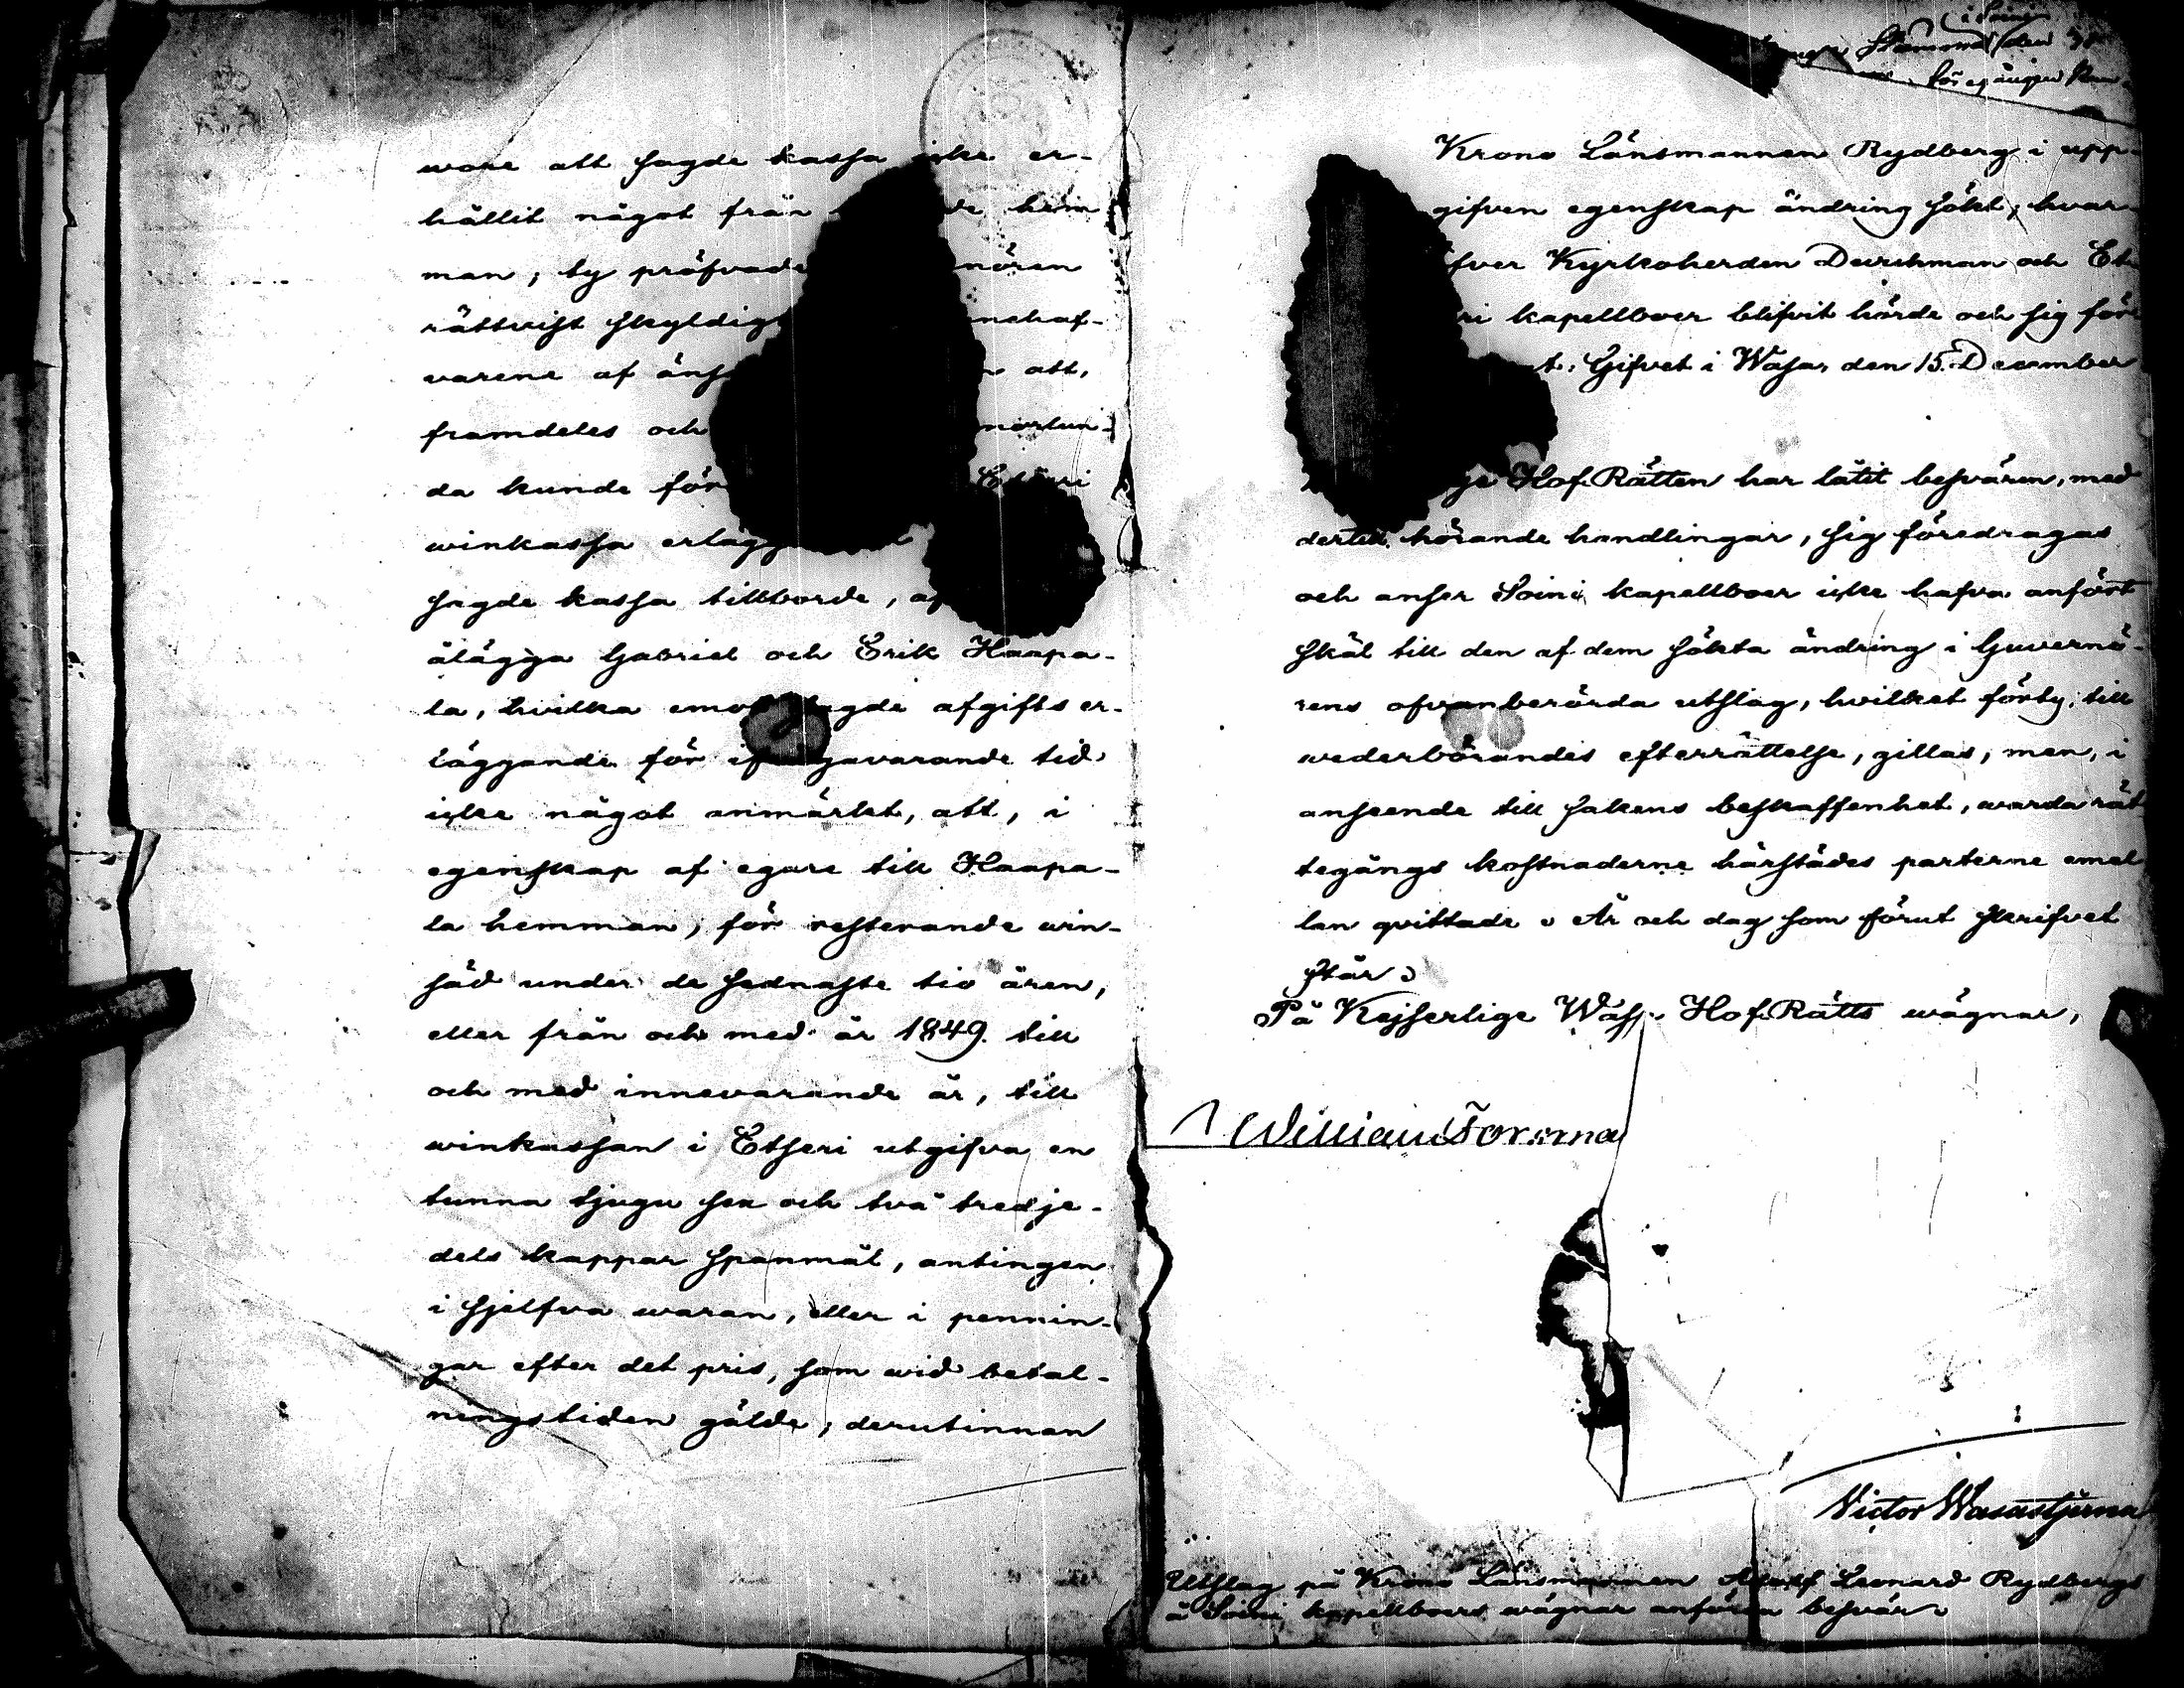 wore att sagde kassa icke er-
hållit något från hem
man; ty pröfvade nören
rättvist skyldigt nehaf-
varene af att,
framdeles och morlun-
da kunde för Etseri
winkassa erlägg
sagde kassa tillborde,
ålägga Gabriel och Erik Haapa-
la, hvilka emot sagde afgifts er-
läggande för ifrågavarande tid
icke något anmärkt, att, i
egenskap af egare till Haapa-
la hemman, för resterande win-
säd under de sednaste tio åren,
eller från och med år 1849. till
och med innevarande år, till
winkassan i Etseri utgifva en
tunna tjugu sex och två tredje-
dels kappar spanmål, antingen
i sjelfva waran, eller i pennin-
gar efter det pris, som wid betal-
ningstiden gälde; derutinnan
i Soini
Stämma den
föregången
Krono Länsmannen Rydberg i upp-
gifven egenskap ändring sökt, hvar-
öfver Kyrkoherden Durchman och Et-
ri kapellboer blifvit hörde och sig för
t. Gifvet i Wasa, den 15. December
ge Hof Rätten har låtit besvären, med
dertill hörande handlingar, sig föredragas
och anser Soini kapellboer icke hafva anfört
skäl till den af dem sökta ändring i Guvernö-
rens ofvanberörda utslag, hvilket förty, till
wederbörandes efterrättelse, gillas, men, i
anseende till sakens beskaffenhet, warda rät
tegångs kostnaderne härstädes parterne emel
lan qvittade. År och dag som förut skrifvet
står.
På Kejserlige Wasa Hof Rätts wägnar,
William Forsma
Victor Wasastjerna
Utslag på Krono Länsmannen Adolf Leonard Rydbergs
å Soini kapellboers wägnar anförda besvär.